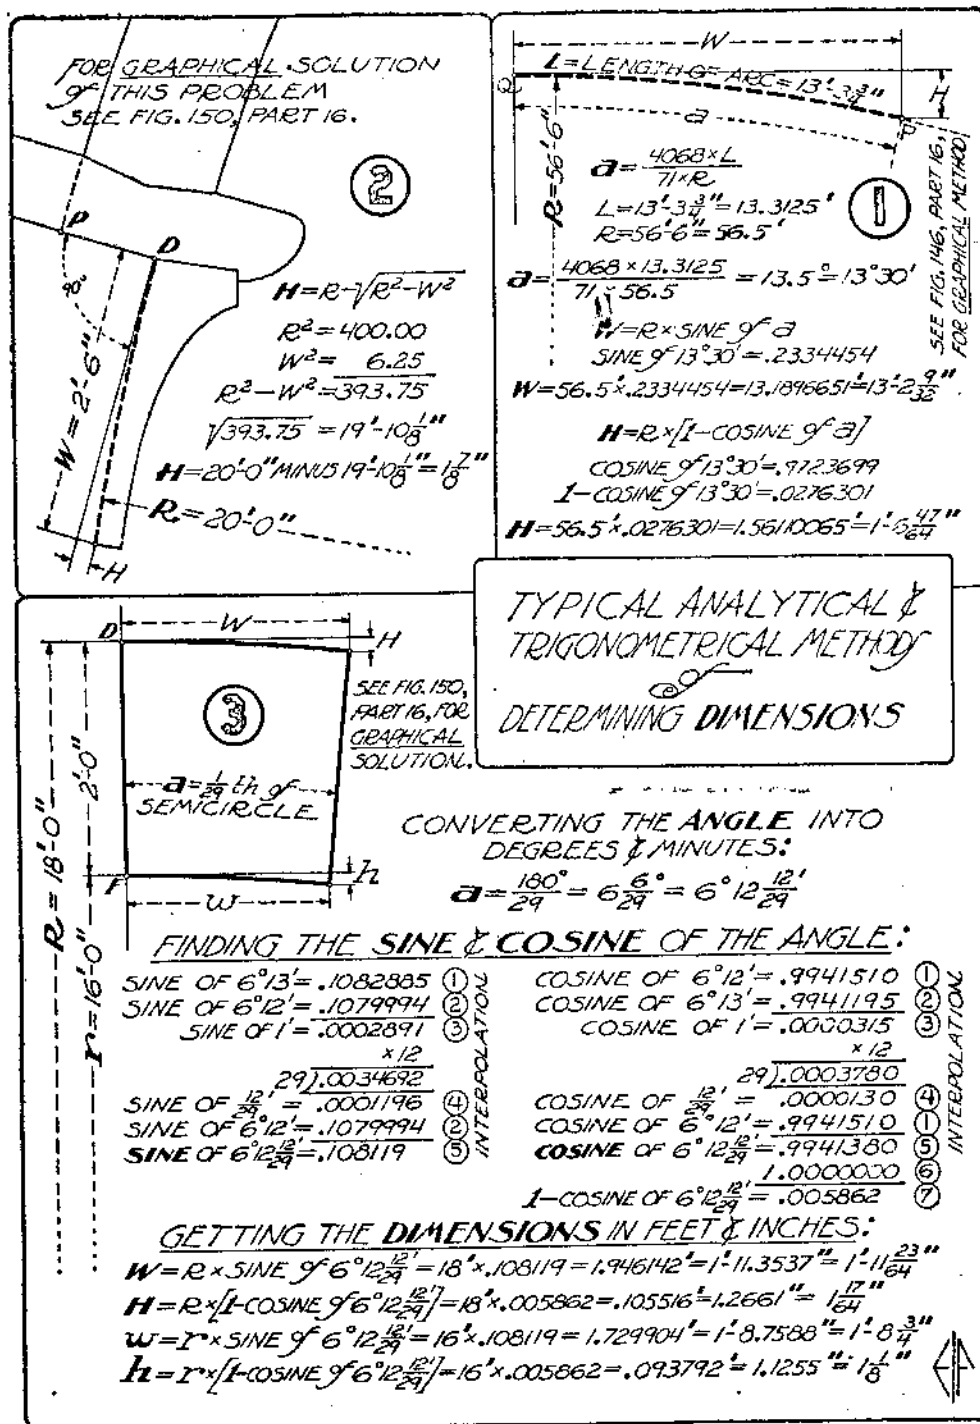 FOR GRAPHICAL SOLUTION
of THIS PROBLEM
SEE FIG. 150, PART 16.
2
P
D
90°
W=2'-6"
H=R-√R²-W²
R²=400.00
W²= 6.25
R²-W²=393.75
√393.75 = 19'-10 1/8"
H=20'-0" MINUS 19'-10 1/8" = 1 7/8"
R=20'-0"
H
W
L=LENGTH OF ARC=13'-3 3/4"
H
a
P
R=56'-6"
1
a = 4068×L / 71×R
L=13'-3 3/4" = 13.3125'
R=56'-6" = 56.5'
a = 4068 × 13.3125 / 71 × 56.5 = 13.5° = 13°30'
W=R×SINE of a
SINE of 13°30' = .2334454
W=56.5'×.2334454=13.1896651'=13'-2 9/32"
H=R×[1-COSINE of a]
COSINE of 13°30'=.9723699
1-COSINE of 13°30'=.0276301
H=56.5'×.0276301=1.56110065'=1'-6 47/64"
SEE FIG. 146, PART 16,
FOR GRAPHICAL METHOD
TYPICAL ANALYTICAL &
TRIGONOMETRICAL METHODS
of
DETERMINING DIMENSIONS
D
W
H
3
SEE FIG. 150,
PART 16, FOR
GRAPHICAL
SOLUTION.
a = 1/29 th of
SEMICIRCLE
R=18'-0"
2'-0"
r=16'-0"
F
w
h
CONVERTING THE ANGLE INTO
DEGREES & MINUTES:
a = 180°/29 = 6 6/29° = 6°12 12/29'
FINDING THE SINE & COSINE OF THE ANGLE:
SINE OF 6°13'=.1082885 1
SINE OF 6°12'=.1079994 2
SINE OF 1'=.0002891 3
×12
29).0034692
SINE OF 12/29' = .0001196 4
SINE OF 6°12'=.1079994 2
SINE OF 6°12 12/29'=.108119 5
INTERPOLATION
COSINE OF 6°12'=.9941510 1
COSINE OF 6°13'=.9941195 2
COSINE OF 1'=.0000315 3
×12
29).0003780
COSINE OF 12/29' = .0000130 4
COSINE OF 6°12'=.9941510 1
COSINE OF 6°12 12/29'=.9941380 5
1.0000000 6
1-COSINE OF 6°12 12/29'=.005862 7
INTERPOLATION
GETTING THE DIMENSIONS IN FEET & INCHES:
W=R×SINE of 6°12 12/29'=18'×.108119=1.946142'=1'-11.3537"=1'-11 23/64"
H=R×[1-COSINE of 6°12 12/29']=18'×.005862=.105516'=1.2661"=1 17/64"
w=r×SINE of 6°12 12/29'=16'×.108119=1.729904'=1'-8.7588"=1'-8 3/4"
h=r×[1-COSINE of 6°12 12/29']=16'×.005862=.093792'=1.1255"=1 1/8"